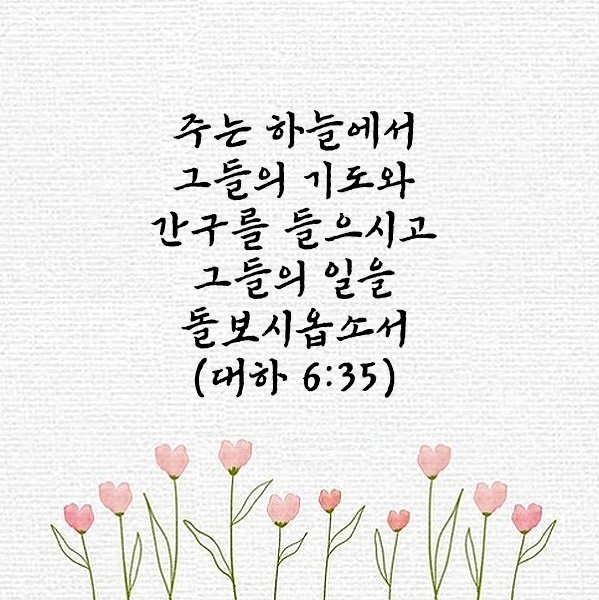 주는 하늘에서
그들의 기도와
간구를 들으시고
그들의 일을
돌보시옵소서
(대하 6:35)